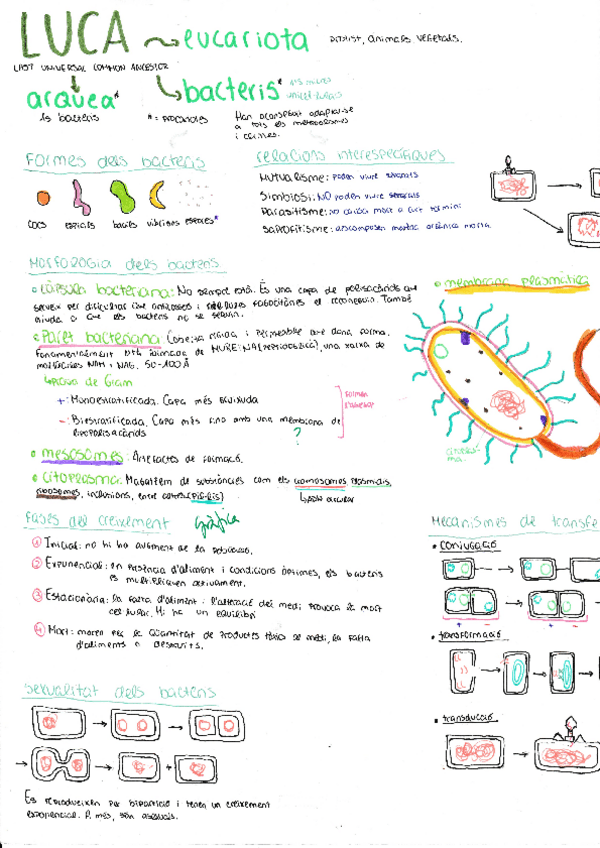 LUCA eucariota protist, animals vegetals.
LAST UNIVERSAL COMMON ANCESTOR
arquea* bacteris*
els bacteris *= PROCARIOTES Han aconseguit adaptar-se
a tots els metabolismes
i climes.
Formes dels bacteris
cocs espirals bacils vibrions espores*
relacions interespecífiques
Mutualisme: poden viure separats
Simbiosi: NO poden viure separats
Parasitisme: no causa mort a curt termini
Saprofitisme: descomponen matèria orgànica morta.
Morfologia dels bacteris
Càpsula bacteriana: No sempre està. És una capa de polisacàrids que
serveix per dificultar que anticossos i cèl·lules fagocítiques el reconeguin. També
ajuda a que els bacteris no se sequin.
Paret bacteriana: Cobertta rígida i permeable que dona forma.
Fonamentalment està formada de MUREINA (peptidoglicà), una xarxa de
molècules NAM i NAG. 50-100 Å
Prova de Gram
+: Monoestratificada. Capa més gruixuda
-: Biestratificada. Capa més fina amb una membrana de
lipopolisacàrids
?
mesosomes: Artefactes de formació.
Citoplasma: Magatzem de substàncies com els cromosomes plasmidis,
ribosomes, inclusions, entre cossos (pili-pilis)
membrana plasmàtica
Fases del creixement gràfica
1 Inicial: no hi ha augment de la població.
2 Exponencial: en presència d'aliment i condicions òptimes, els bacteris
es multipliquen activament.
3 Estacionària: la falta d'aliment i l'alteració del medi provoca la mort
cel·lular. Hi ha un equilibri
4 Mort: moren per la quantitat de productes tòxics al medi, la falta
d'aliments o desnutrits.
Mecanismes de transfe
conjugació
+ - + -
transformació
transducció
Sexualitat dels bacteris
Es reprodueixen per bipartició i tenen un creixement
exponencial. A més, són asexuals.